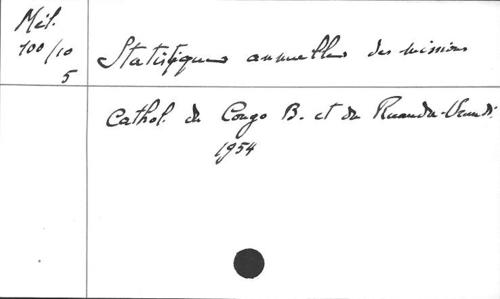 Mél.
100/10
5
Statistiques annuelles des missions
Cathol. du Congo B. et du Ruanda-Urundi
1954